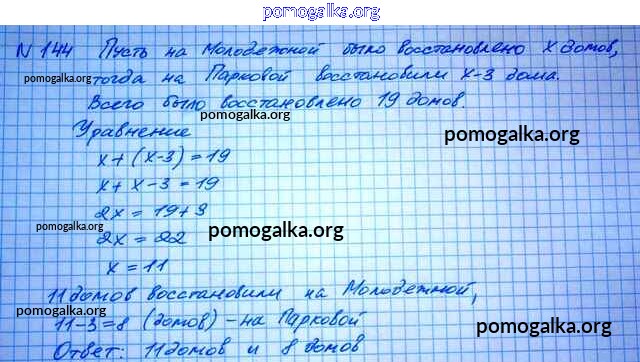 pomogalka.org
N 144 Пусть на Молодежной было восстановлено х домов,
pomogalka.org тогда на Парковой восстановили х-3 дома.
Всего было восстановлено 19 домов.
pomogalka.org
Уравнение
pomogalka.org
х+(х-3)=19
х+х-3=19
2х=19+3
pomogalka.org
pomogalka.org
2х=22
х=11
11 домов восстановили на Молодежной,
pomogalka.org
11-3=8 (домов) - на Парковой
pomogalka.org
Ответ: 11 домов и 8 домов